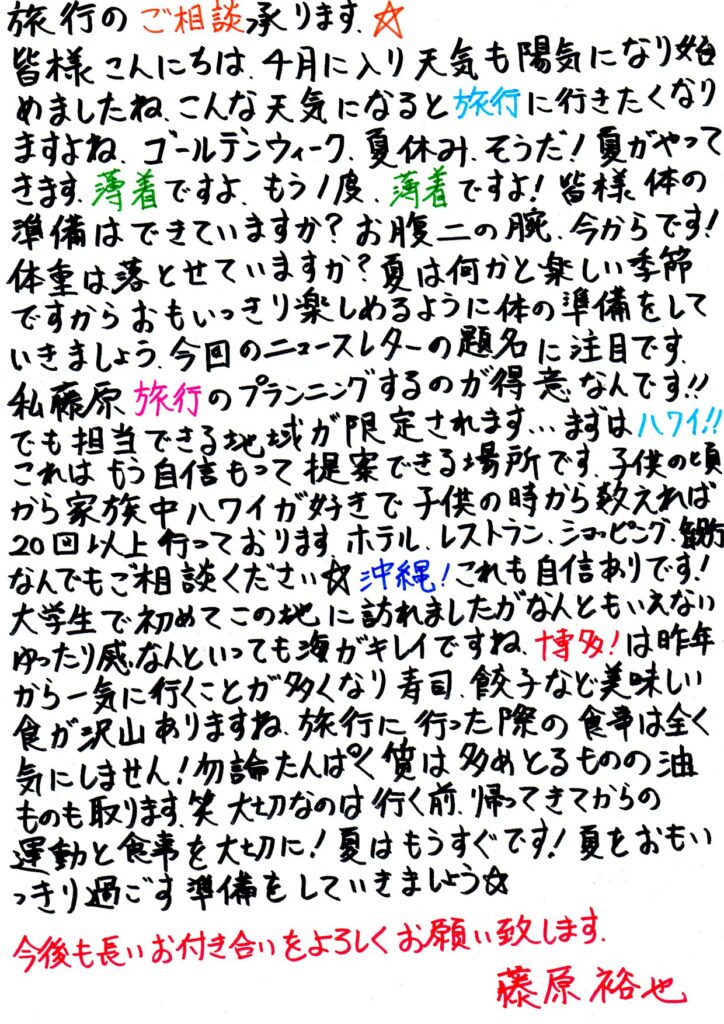 旅行のご相談承ります.☆
皆様こんにちは、4月に入り天気も陽気になり始
めましたね、こんな天気になると旅行に行きたくなり
ますよね、ゴールデンウィーク、夏休み、そうだ！夏がやって
きます、薄着ですよ、もう1度、薄着ですよ！皆様、体の
準備はできていますか？お腹二の腕、今からです！
体重は落とせていますか？夏は何かと楽しい季節
ですからおもいっきり楽しめるように体の準備をして
いきましょう、今回のニュースレターの題名に注目です、
私藤原、旅行のプランニングするのが得意なんです!!
でも担当できる地域が限定されます…まずはハワイ!!
これはもう自信もって提案できる場所です、子供の頃
から家族中ハワイが好きで子供の時から数えれば
20回以上行っております、ホテル、レストラン、ショッピング、観光
なんでもご相談ください☆沖縄！これも自信ありです！
大学生で初めてこの地に訪れましたがなんともいえない
ゆったり感、なんといっても海がキレイですね、博多！は昨年
から一気に行くことが多くなり寿司、餃子など美味しい
食が沢山ありますね、旅行に行った際の食事は全く
気にしません！勿論たんぱく質は多めとるものの油
ものも取ります、笑 大切なのは行く前、帰ってきてからの
運動と食事を大切に！夏はもうすぐです！夏をおもい
っきり過ごす準備をしていきましょう☆
今後も長いお付き合いをよろしくお願い致します.
藤原裕也